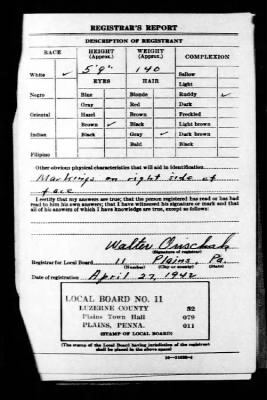 REGISTRAR'S REPORT
DESCRIPTION OF REGISTRANT
RACE HEIGHT (Approx.) WEIGHT (Approx.) COMPLEXION
White ✓ 5'9" 140 Sallow
EYES HAIR Light
Negro Blue Blonde Ruddy ✓
Gray Red Dark
Oriental Hazel Brown Freckled
Brown ✓ Black Light brown
Indian Black Gray ✓ Dark brown
Bald Black
Filipino
Other obvious physical characteristics that will aid in identification
Markings on right side of
face
I certify that my answers are true; that the person registered has read or has had
read to him his own answers; that I have witnessed his signature or mark and that
all of his answers of which I have knowledge are true, except as follows:
Walter
(Signature of registrar)
Registrar for Local Board 11 Plains Pa.
(Number) (City or county) (State)
Date of registration April 27, 1942
LOCAL BOARD NO. 11
LUZERNE COUNTY 82
Plains Town Hall 079
PLAINS, PENNA. 011
(STAMP OF LOCAL BOARD)
(The stamp of the Local Board having jurisdiction of the registrant
shall be placed in the above space)